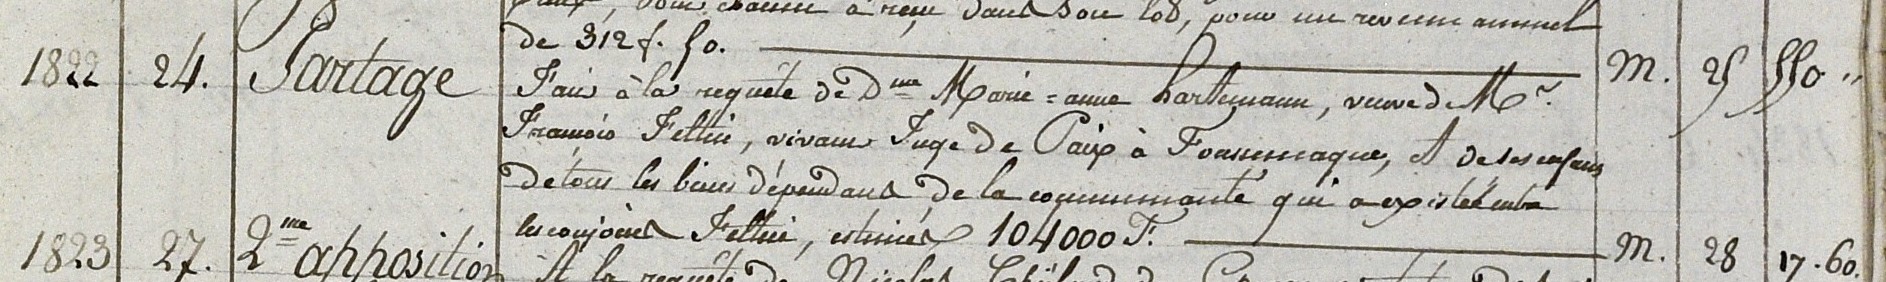 paux, dont chacun a reçu dans son lot, pour un revenu annuel
de 312 f. 50.
M. 25 550 "
1822 24. Partage Fait à la requête de Dme Marie=anne hartemann, veuve de Mr.
François Feltin, vivant Juge de Paix à Foussemagne, et de ses enfans
de tous les biens dépendans de la communauté qui a existé entre
les conjoints Feltin, estimés 104000 F. M. 28 17.60.
1823 27. 2me apposition A la requête de Nicolas